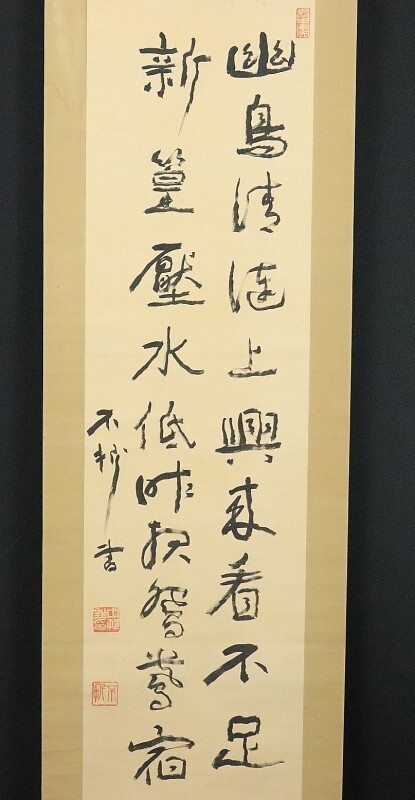 幽鳥清漣上興來看不足
新篁壓水低昨夜鴛鴦宿
不折書